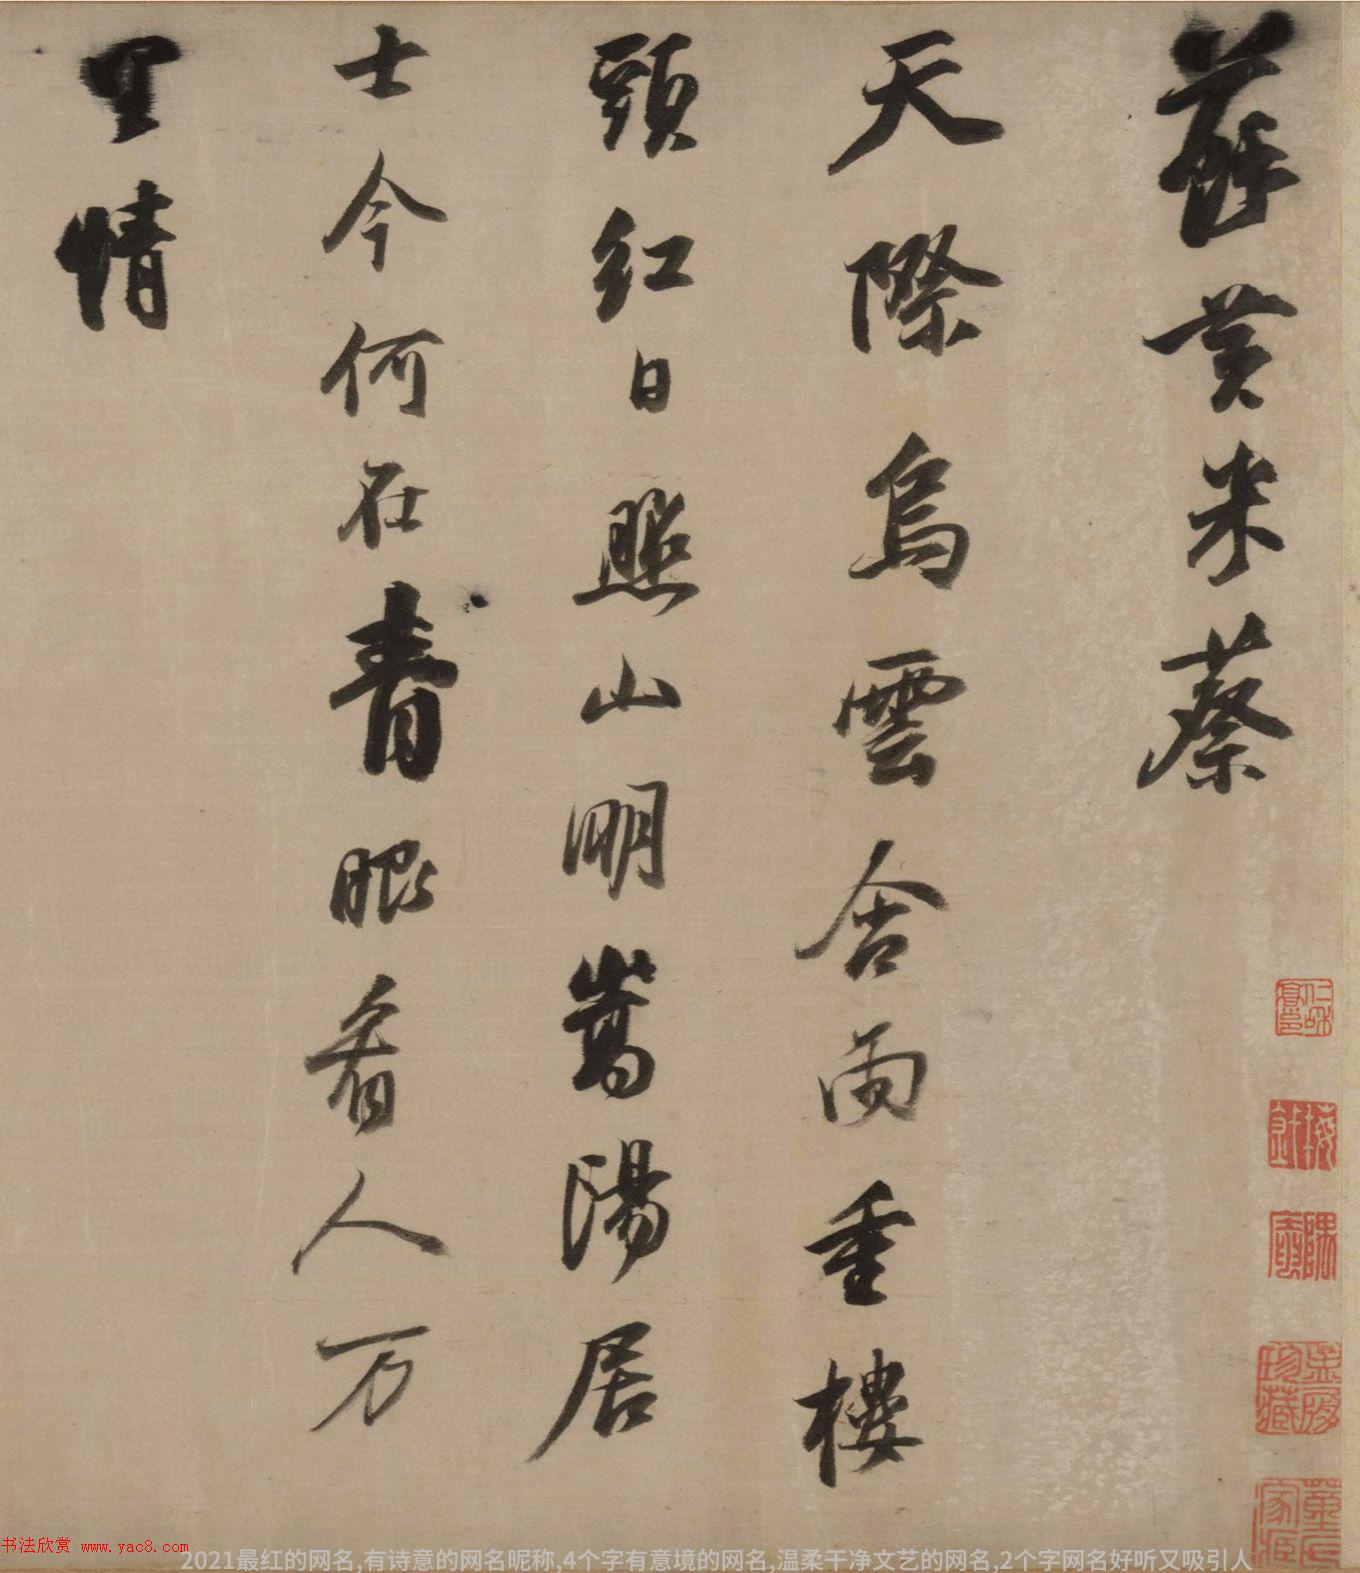 蘇黄米蔡
天際烏雲含雨重樓
頭紅日照山明嵩陽居
士今何在青眼看人万
里情
书法欣赏 www.yac8.com
2021最红的网名,有诗意的网名昵称,4个字有意境的网名,温柔干净文艺的网名,2个字网名好听又吸引人